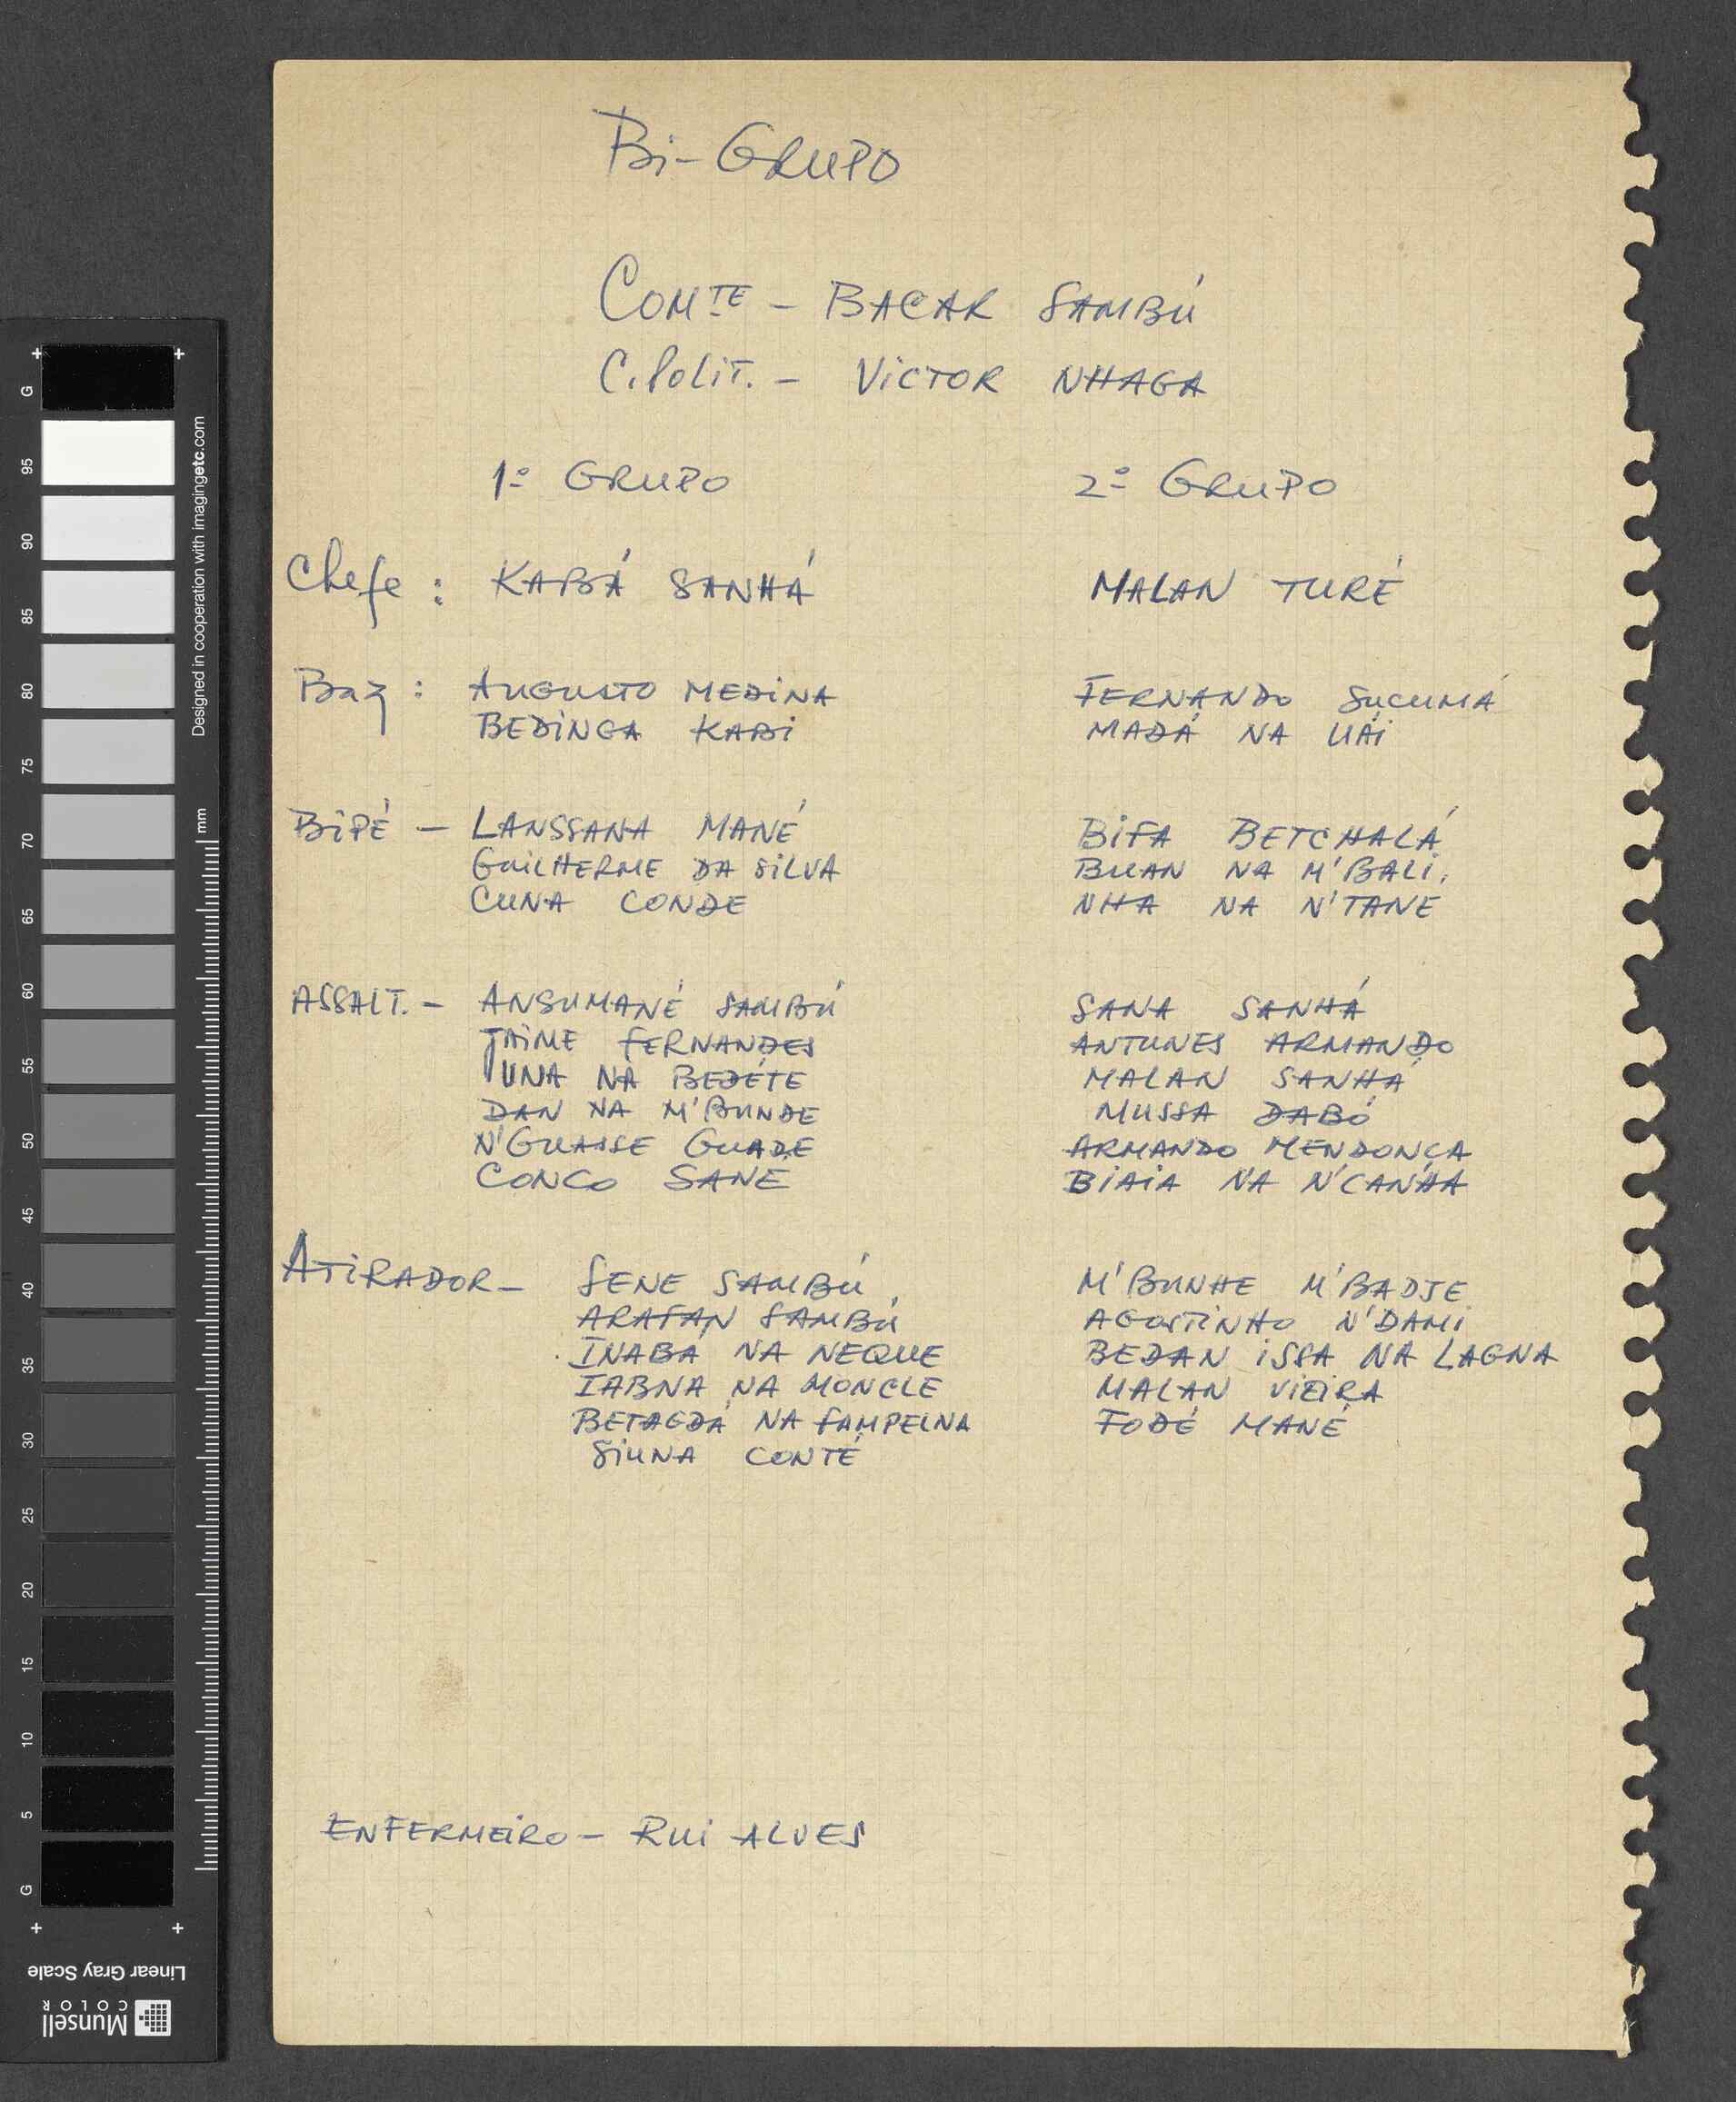 Bi-GRUPO
COMTE - BACAR SAMBÚ
C. Polit. - VICTOR NHAGA
1º GRUPO 2º GRUPO
Chefe : KABÁ SANHÁ MALAN TURÉ
Baz : AUGUSTO MEDINA FERNANDO SUCUMÁ
BEDINGA KABI MADÁ NA UÁI
BIPÉ - LANSSANA MANÉ BIFA BETCHALÁ
GUILHERME DA SILVA BUAN NA M'BALI.
CUNA CONDE NHA NA N'TANE
ASSALT. - ANSUMANÉ SAMBÚ SANA SANHÁ
JAIME FERNANDES ANTUNES ARMANDO
UNA NA BEDÉTE MALAN SANHÁ
DAN NA M'BUNDE MUSSA DABÓ
N'GUASSE GUADE ARMANDO MENDONCA
CONCO SANÉ BIAIA NA N'CANHA
ATIRADOR - SENE SAMBÚ M'BUNHE M'BADJE
ARAFAN SAMBÚ AGOSTINHO N'DAMI
INABA NA NEQUE BEDAN ISSA NA LAGNA
IABNA NA MONCLE MALAN VIEIRA
BETAGDÁ NA FAMPELNA FODÉ MANÉ
SIUNA CONTÉ
ENFERMEIRO - RUI ALVES
G 95 90 85 80 75 70 65 60 55 50 45 40 35 30 25 20 15 10 5 G
Designed in cooperation with imagingetc.com
mm
Linear Gray Scale
Munsell
COLOR